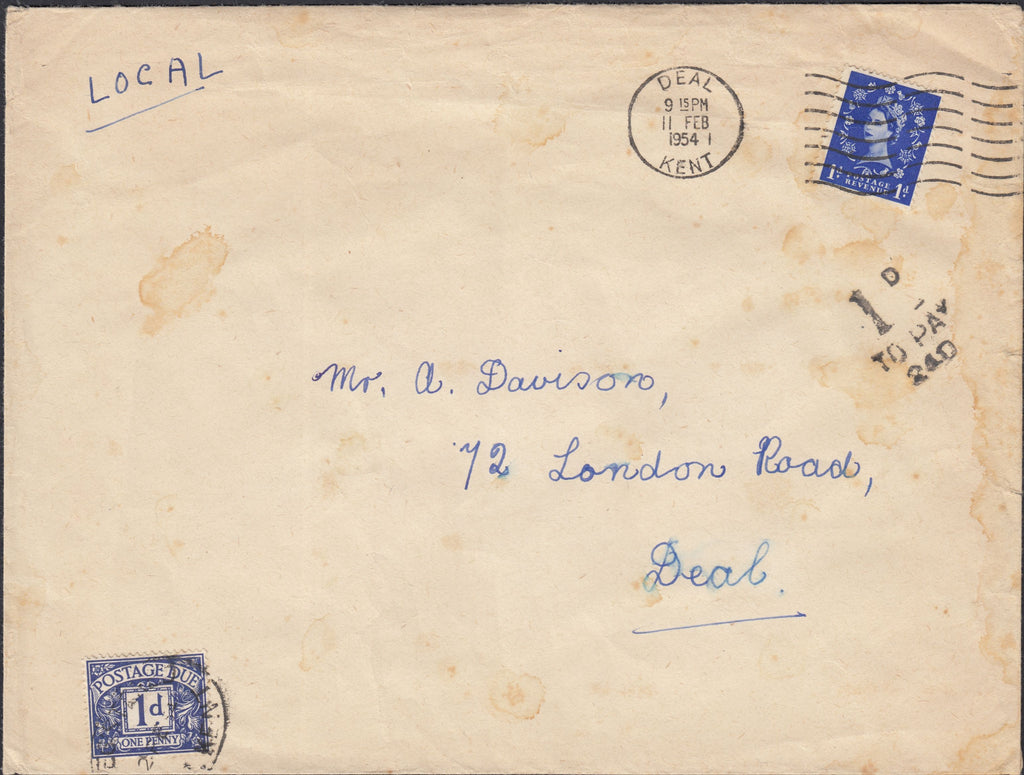 LOCAL
DEAL
9 15 PM
11 FEB
1954
KENT
POSTAGE
REVENUE
1D 1D
1D
TO PAY
24D
Mr. A. Davison,
72 London Road,
Deal.
POSTAGE DUE
1d
ONE PENNY